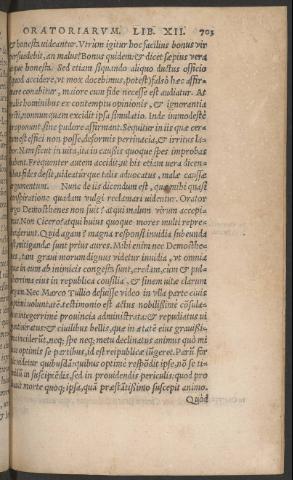 ORATORIARVM LIB. XII. 703
& honesta uideantur. Vtrùm igitur hoc facilius bonus uir
persuadebit, an malus? Bonus quidem: & dicet sæpius uera
atque honesta. Sed etiam siquando aliquo ductus officio
quod accidere, ut mox docebimus, potest) falsò hæc affir-
mare conabitur, maiore cum fide necesse est audiatur. At
malis hominibus ex contemptu opinionis, & ignorantia
recti, nonnunquam excidit ipsa simulatio. Inde immodestè
proponunt, sine pudore affirmant. Sequitur in iis quæ cer-
tum est effici non posse, deformis pertinacia, & irritus la-
bor. Nam sicut in uita, ita in causis quoque spes improbas
habent. Frequenter autem accidit, ut his etiam uera dicen-
tibus fides desit, uideaturque talis aduocatus, malæ caussæ
argumentum. Nunc de iis dicendum est, quæ mihi quasi
conspiratione quadam vulgi reclamari uidentur. Orator
ergo Demosthenes non fuit? atqui malum uirum accepi-
mus. Non Cicero? atqui huius quoque mores multi repre-
henderunt. Quid agam? magna responsi inuidia subeunda
est, mitigandæ sunt prius aures. Mihi enim nec Demosthe-
nes, tam graui morum dignus videtur inuidia, vt omnia
quæ in eum ab inimicis congesta sunt, credam, cum & pul-
cherrima eius in republica consilia, & finem uitæ clarum
legam. Nec Marco Tullio defuisse video in vlla parte ciuis
optimi voluntatē. testimonio est actus nobilissimè cōsula-
tus, integerrimè prouincia administrata: & repudiatus ui
gintiuiratus: & ciuilibus bellis, quæ in ætatē eius grauißi-
ma inciderūt, neq; spe neq; metu declinatus animus quò mi
nus optimis se partibus, id est reipublicæ iūgeret. Parū for
tis videtur quibusdā: quibus optimè respōdit ipse, nō se ti-
midū in suscipiēdis, sed in prouidendis periculis: quod pro
bauit morte quoq; ipsa, quā præstātißimo suscepit animo.
Quòd